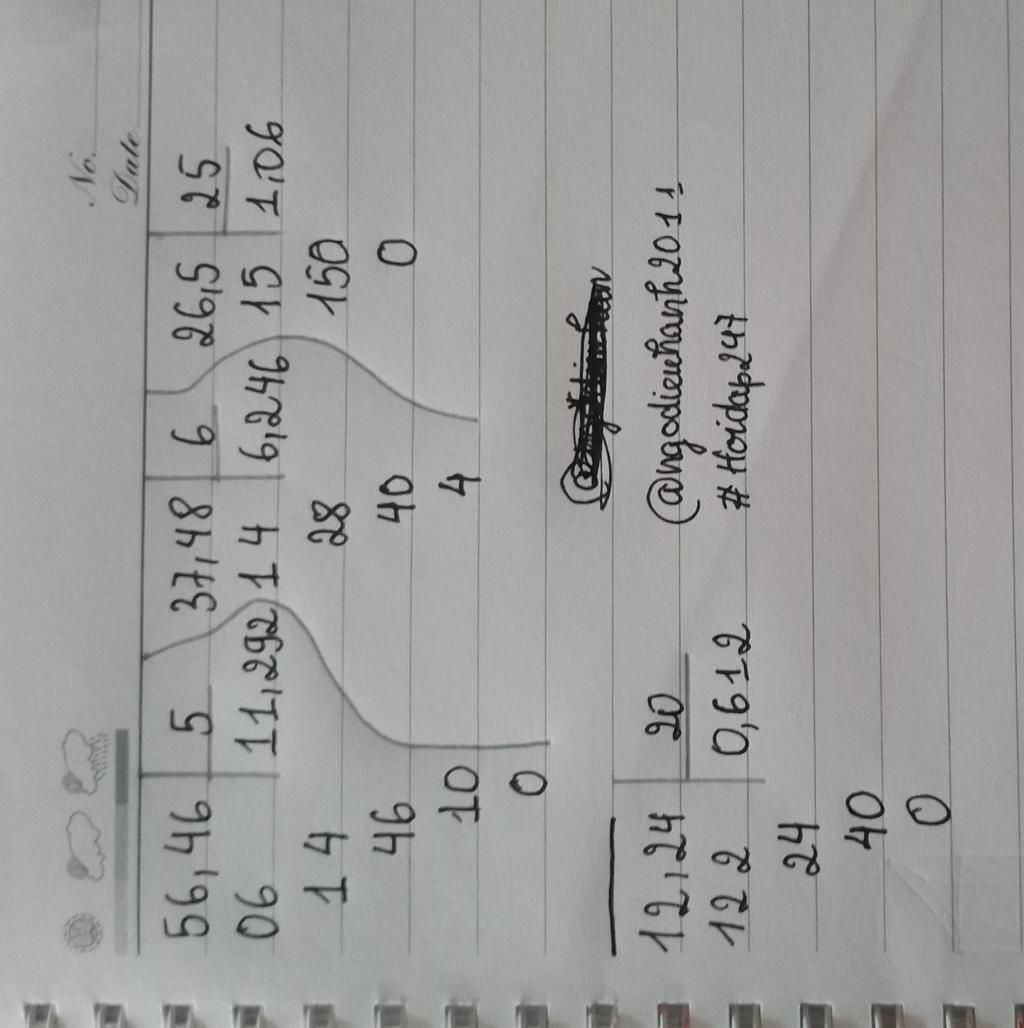 No.
Date
56,46 5 37,48 6 26,5 25
06 11,292 14 6,246 15 1,06
14 28 150
46 40 0
10 4
0
12,24 20 @ngodieuhanh2011
122 0,612 #Hoidap247
24
40
0